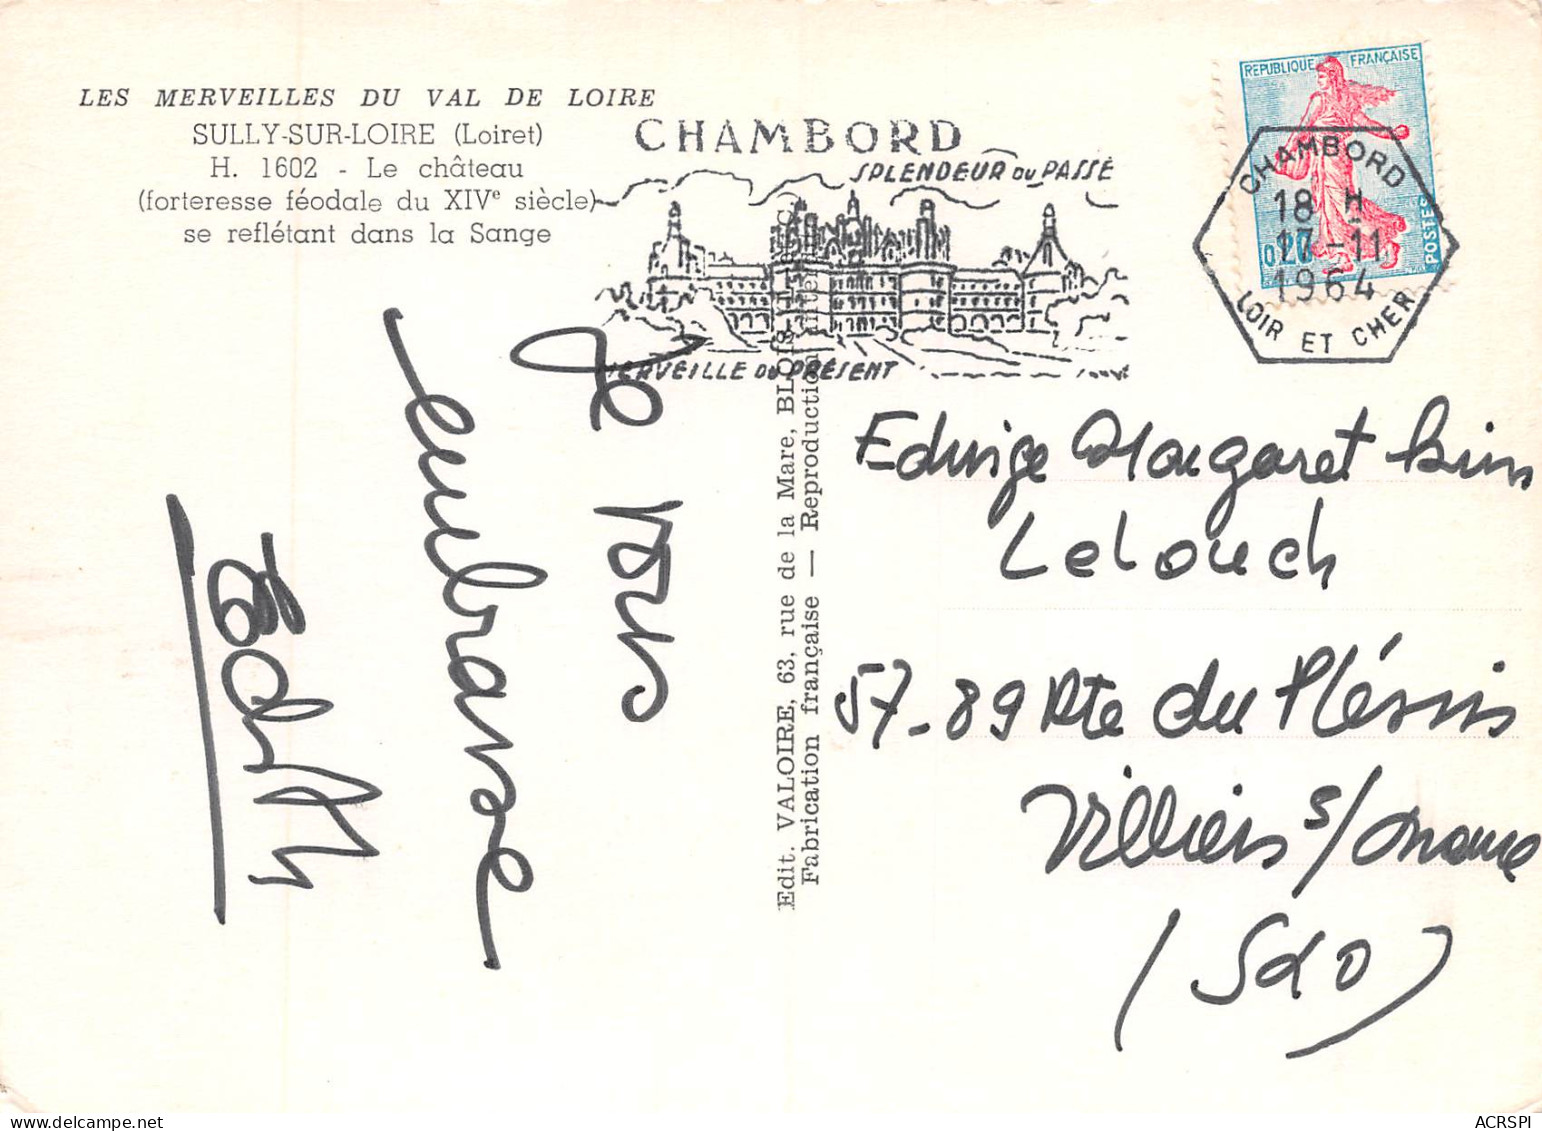 LES MERVEILLES DU VAL DE LOIRE
SULLY-SUR-LOIRE (Loiret)
H. 1602 - Le château
(forteresse féodale du XIVe siècle)
se reflétant dans la Sange
CHAMBORD
SPLENDEUR DU PASSÉ
MERVEILLE DU PRÉSENT
REPUBLIQUE FRANÇAISE
0,20
POSTES
CHAMBORD
18 H
17-11
1964
LOIR ET CHER
Je vous
embrasse
Edith
Edit. VALOIRE, 63, rue de la Mare, BLOIS
Fabrication française — Reproduction
Edwige Margaret
Lelouch
57-89 Rte du Pléssis
Villiers s/ marne
(S&O)
ACRSPI